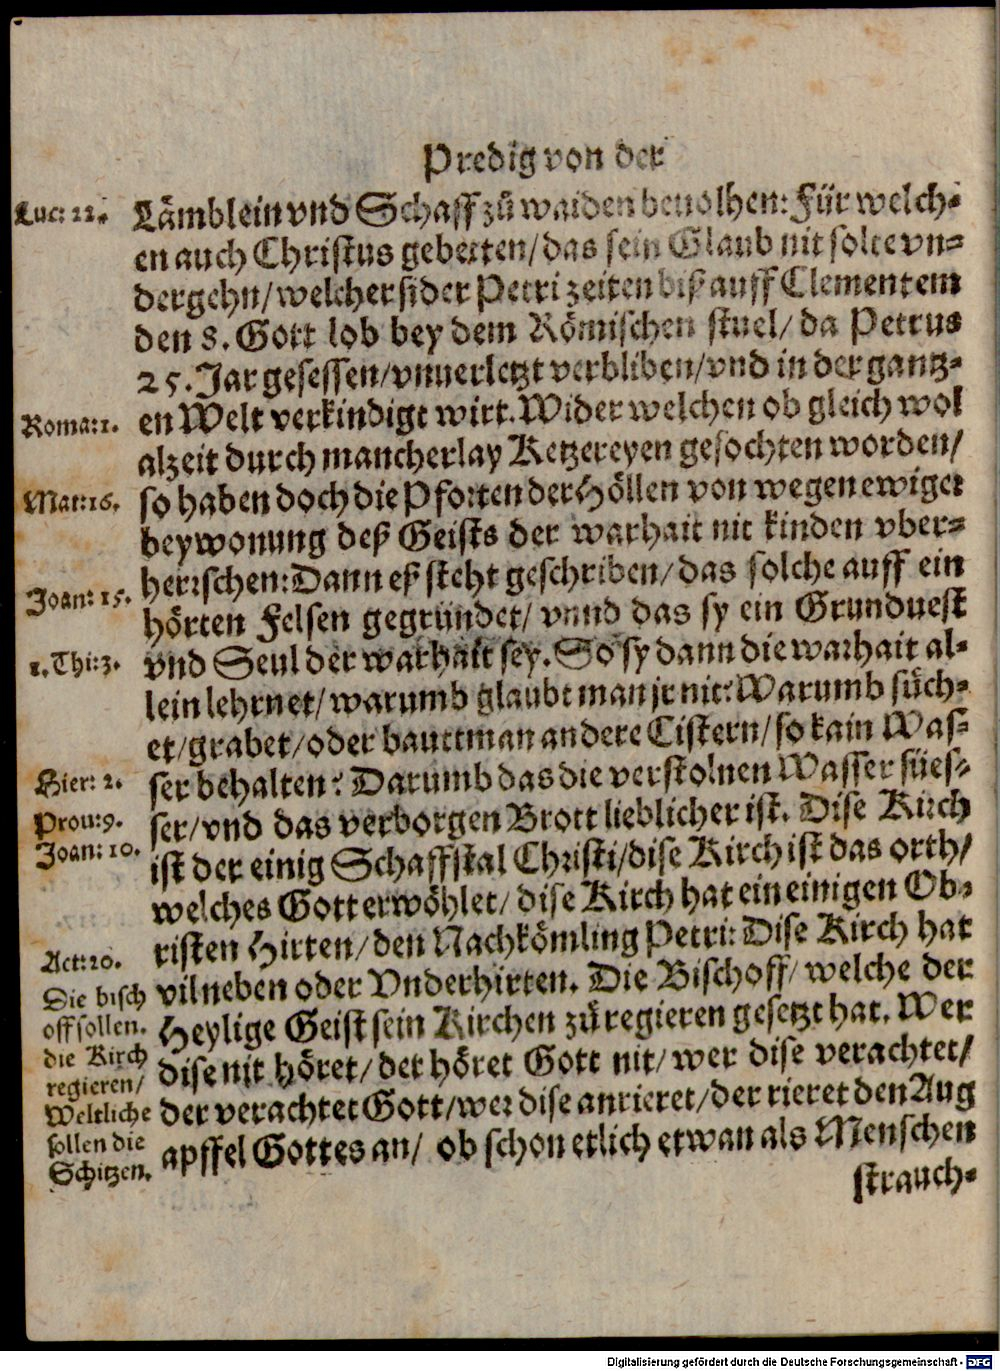 Predig von der
Luc: 22.
Lämblein vnd Schaff zů waiden beuolhen: Für welch-
en auch Christus gebetten/ das sein Glaub nit solte vn-
dergehn/ welcher sider Petri zeiten biß auff Clementem
den 8. Gott lob bey dem Römischen stuel/ da Petrus
25. Jar gesessen/ vnuerletzt verbliben/ vnd in der gantz-
Roma: 1.
en Welt verkindigt wirt. Wider welchen ob gleich wol
alzeit durch mancherlay Ketzereyen gefochten worden/
Mat: 16.
so haben doch die Pforten der Höllen von wegen ewiger
beywonung deß Geists der warhait nit kinden vber-
Joan: 15.
herrschen: Dann eß steht geschriben/ das solche auff ein
hörten Felsen gegründet/ vnnd das sy ein Grunduest
1. Thi: 3.
vnd Seul der warhait sey. So sy dann die warhait al-
lein lehrnet/ warumb glaubt man jr nit? Warumb süch-
et/ grabet/ oder bauttman andere Cistern/ so kain Was-
Hier: 2.
ser behalten? Darumb das die verstolnen Wasser süs-
Prou: 9.
ser/ vnd das verborgen Brott lieblicher ist. Dise Kirch
Joan: 10.
ist der einig Schaffstal Christi/ dise Kirch ist das orth/
welches Gott erwöhlet/ dise Kirch hat ein einigen Ob-
risten Hirten/ den Nachkömling Petri: Dise Kirch hat
Act: 20.
vil neben oder Vnderhirten. Die Bischoff/ welche der
Die bisch
off sollen.
die Kirch
regieren/
Weltliche
sollen die
Schitzen.
Heylige Geist sein Kirchen zů regieren gesetzt hat. Wer
dise nit höret/ der höret Gott nit/ wer dise verachtet/
der verachtet Gott/ wer dise anrieret/ der rieret den Aug
apffel Gottes an/ ob schon etlich etwan als Menschen
strauch-
Digitalisierung gefördert durch die Deutsche Forschungsgemeinschaft - DFG